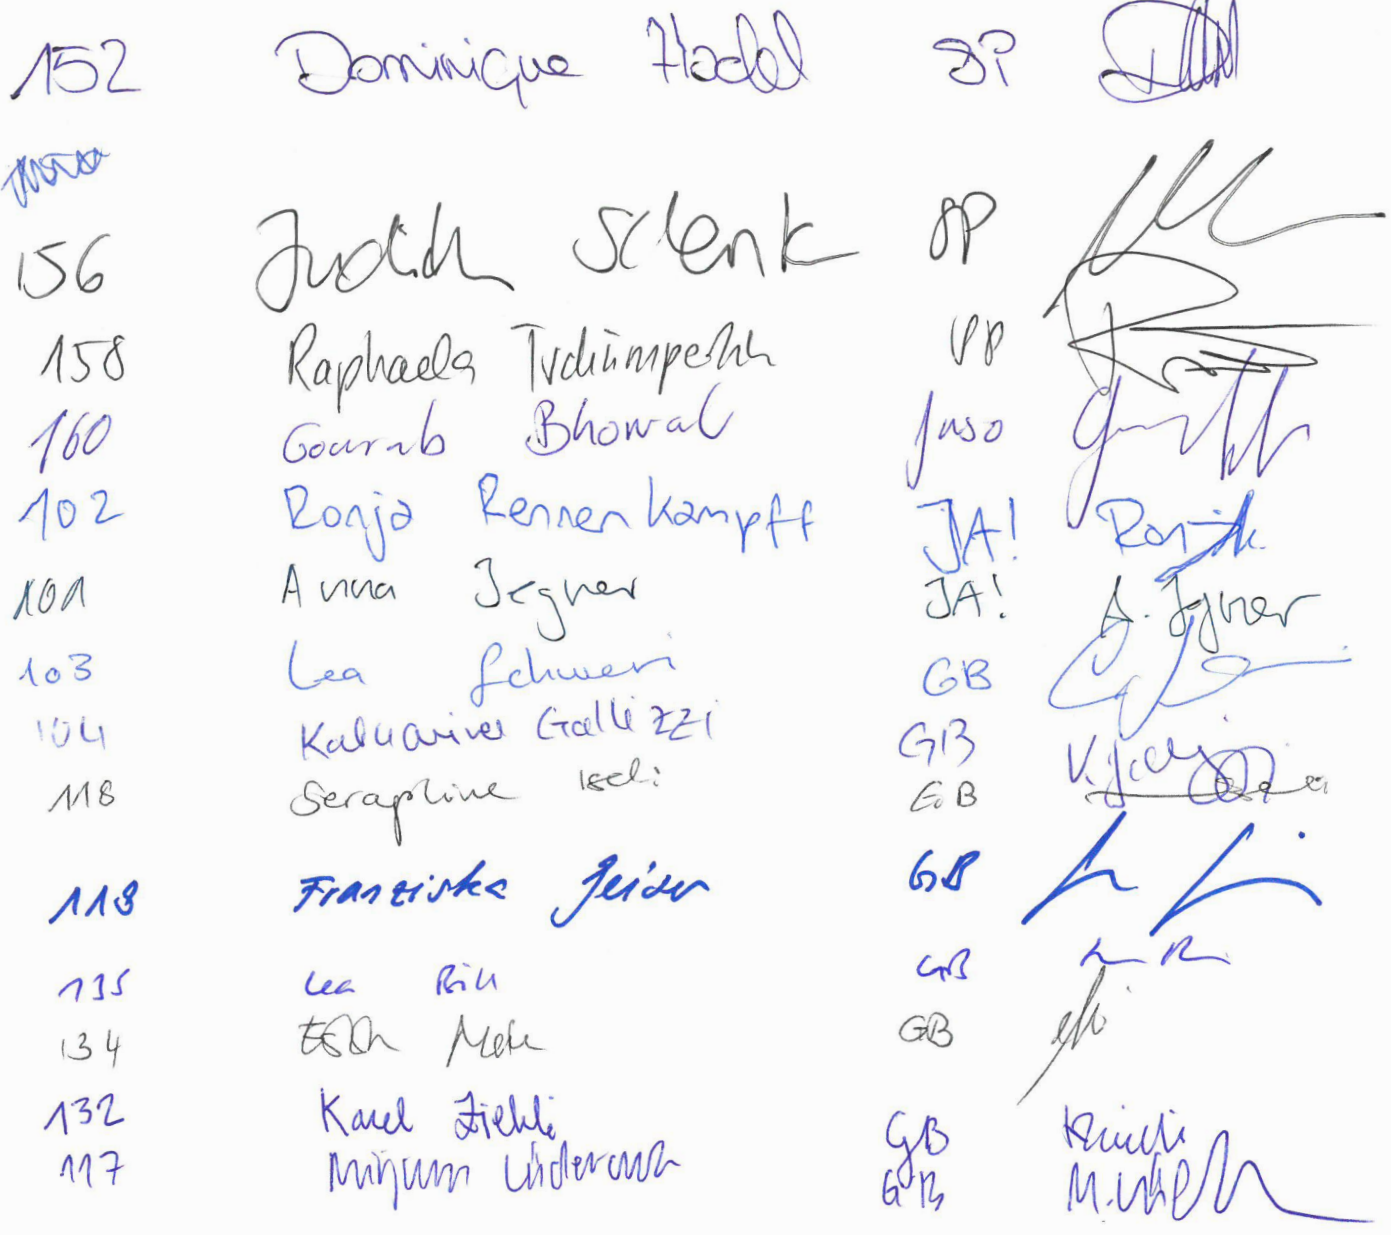 152 Dominique Hodel SP
156 Judith Schenk SP
158 Raphaela Tschümperlin SP
160 Gourab Bhowal Juso
102 Ronja Rennenkampff JA! Ronja
101 Anna Jegher JA! A. Jegher
103 Lea Schweri GB
104 Katharina Gallizzi GB
118 Seraphine Iseli GB
Franziska Geiser GB
135 Lea Bill GB
134 Esther Meier GB
132 Karel Ziehli GB
117 Mirjam Läderach GB